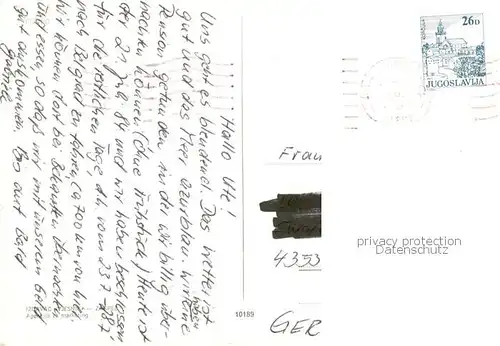 Hallo Ute!
Uns geht es blendend. Das Wetter ist
gut und das Meer azurblau. Wir haben eine
Pension gefunden in der wir billig über-
nachten können (ohne Frühstück) Heute ist
der 21. Juli 87 und wir haben beschlossen
für die restlichen Tage d.h. vom 23.7.-
nach Belgrad zu fahren, ca 700 km von hier.
Wir können dort bei Bekannten übernachten
und essen, so daß wir mit unserem Geld
gut auskommen. Bis bald
Gabriele
10189
26D
JUGOSLAVIJA
Frau
4353
GER
privacy protection
Datenschutz